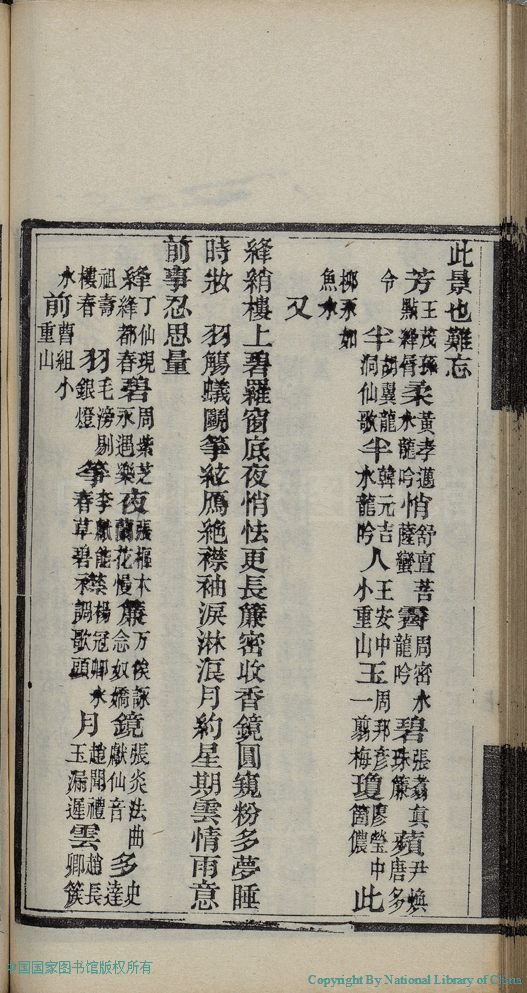 此景也難忘
芳王茂孫點絳唇柔黃孝邁水龍吟悄舒亶菩薩蠻霽周密水龍吟碧張翥真珠簾蘋尹煥唐多
令半胡翼龍洞仙歌半韓元吉水龍吟人王安中小重山玉周邦彥一翦梅瓊廖瑩中箇儂此
柳永如魚水
又
絳綃樓上碧羅窗底夜悄怯更長簾密收香鏡圓窺粉多夢睡
時妝　羽觴蟻鬭箏絃鴈絶襟袖淚淋浪月約星期雲情雨意
前事忍思量
絳丁仙現絳都春碧周紫芝永遇樂夜張樞木蘭花慢簾万俟詠念奴嬌鏡張炎法曲獻仙音多史達
祖壽樓春羽毛滂剔銀燈箏李獻能春草碧襟楊冠卿水調歌頭月趙聞禮玉漏遲雲趙長卿簇
水前曹組小重山
中国国家图书馆版权所有
Copyright By National Library of China